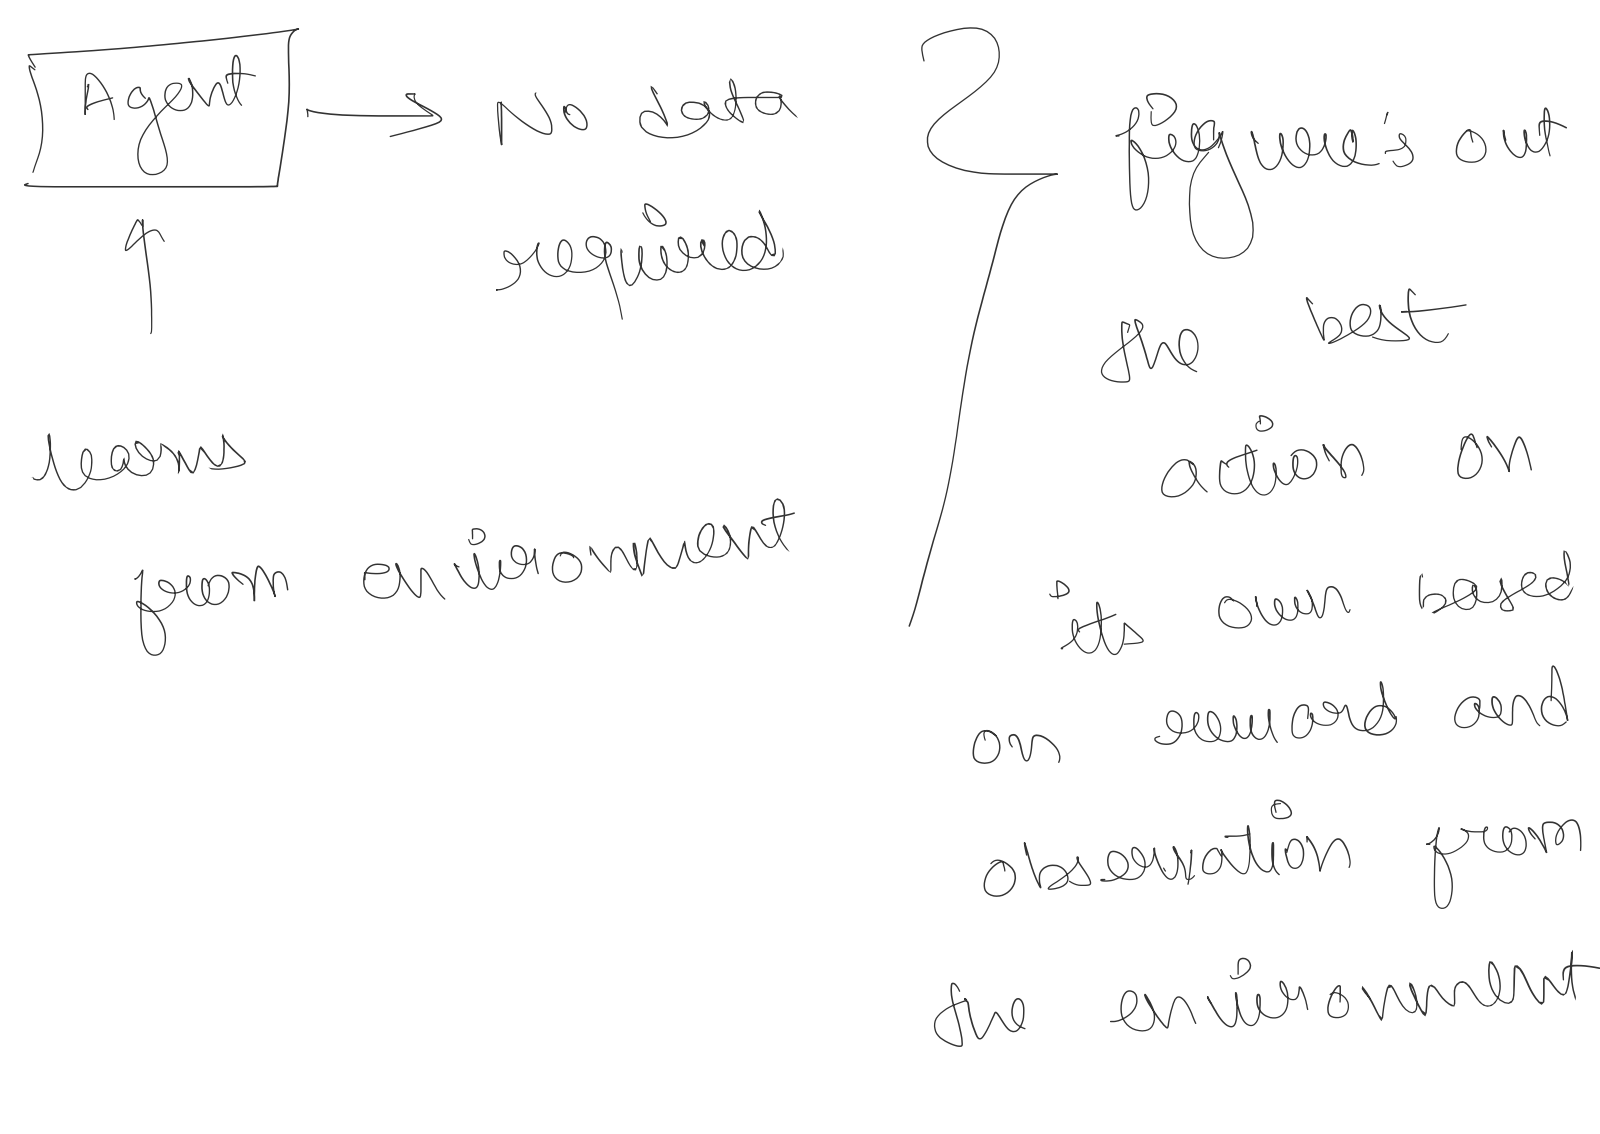 Agent
No data
required
learns
from environment
figure's out
the best
action on
its own based
on reward and
observation from
the environment